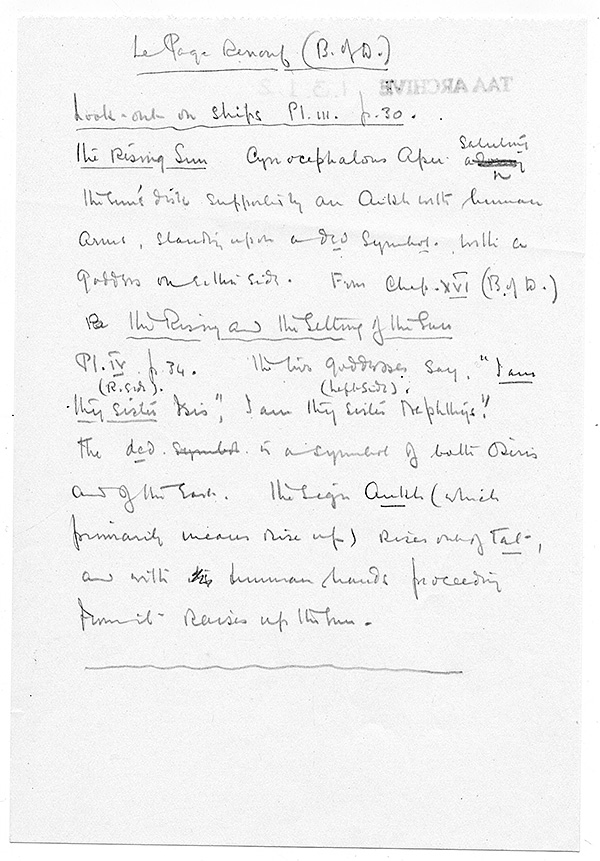 Le Page Renouf (B. of D.)
TAA ARCHIVE 1.3.1.2
Look-out on ships Pl. III. p. 30.
The Rising Sun Cynocephalous Apes saluting
the Sun's disk supported by an Ankh with human
arms, standing upon a ded symbol. With a
goddess on either side. From Chap. XVI (B. of D.)
The Rising and the Setting of the Sun
Pl. IV p. 34. The two goddesses say, "I am
(R. side). (Left side).
thy sister Isis", "I am thy sister Nephthys".
The ded symbol is a symbol of both Osiris
and of the East. The sign Ankh (which
primarily means rise up) rises out of Tat,
and with human hands proceeding
from it raises up the Sun.